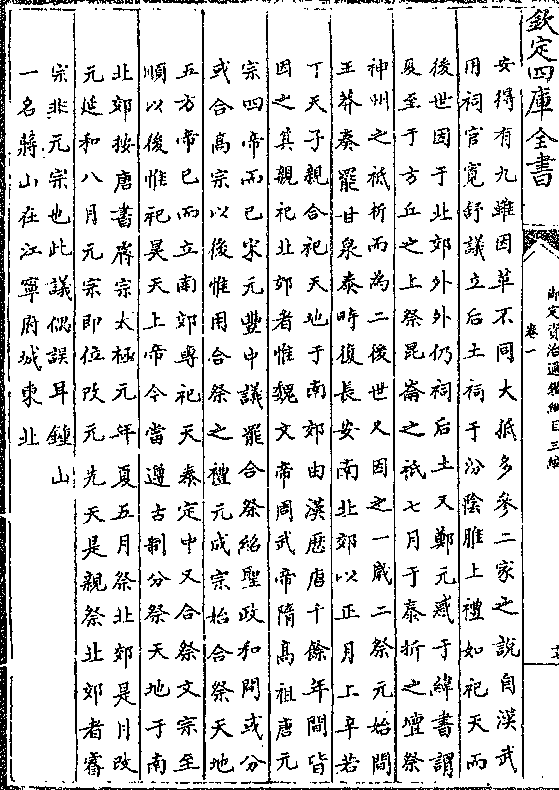 欽定四庫全書
御定資治通鑑綱目三編
卷一
安得有九雖因革不同大抵多參二家之說自漢武
用祠官寬舒議立后土祠于汾陰脽上禮如祀天而
後世因于北郊外外仍祠后土又鄭元惑于緯書謂
夏至于方丘之上祭昆崙之祗七月于泰折之壇祭
神州之祗析而為二後世又因之一歲二祭元始間
王莽奏罷甘泉泰畤復長安南北郊以正月上辛若
丁天子親合祀天地于南郊由漢歷唐千餘年間皆
因之其親祀北郊者惟魏文帝周武帝隋高祖唐元
宗四帝而已宋元豐中議罷合祭紹聖政和間或分
或合高宗以後惟用合祭之禮元成宗始合祭天地
五方帝已而立南郊專祀天泰定中又合祭文宗至
順以後惟祀昊天上帝今當遵古制分祭天地于南
北郊按唐書睿宗太極元年夏五月祭北郊是月改
元延和八月元宗即位改元先天是親祭北郊者睿
宗非元宗也此議偶誤耳鍾山
一名蔣山在江寧府城東北